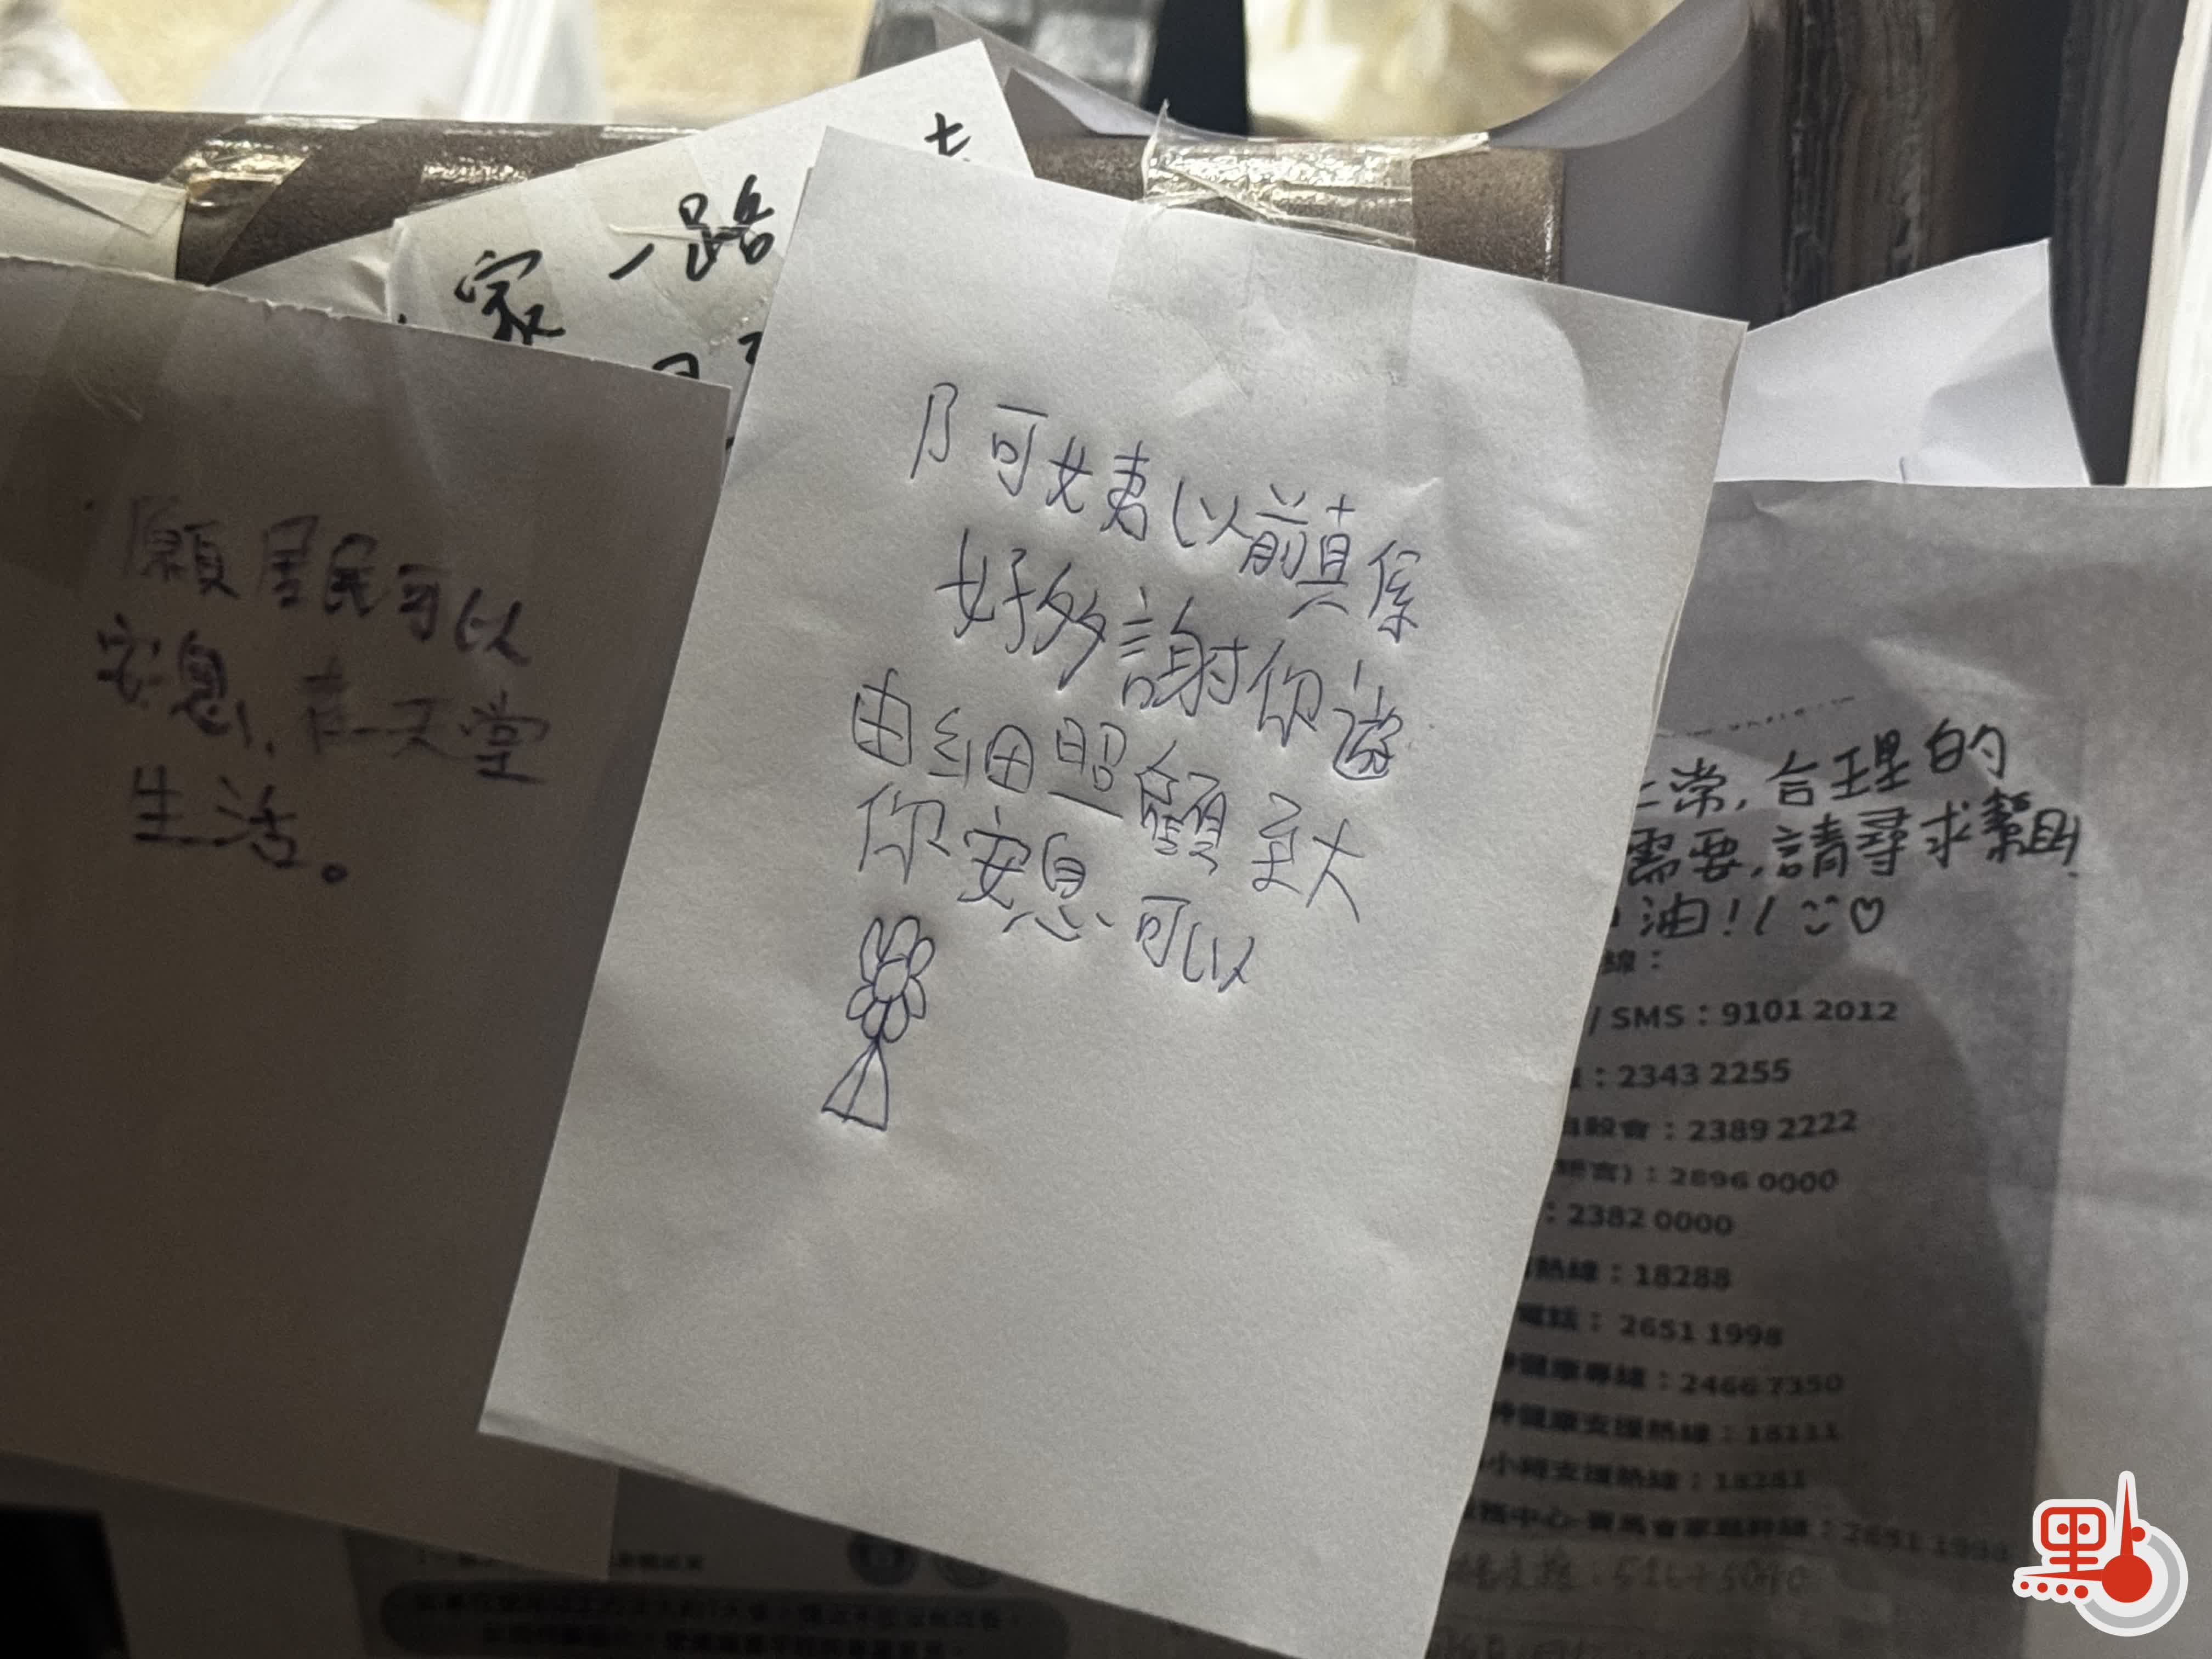 家一路
願居民可以
安息,在天堂
生活。
阿姨以前真係
好多謝你
由細照顧至大
你安息可以
常,合理的
需要,請尋求幫助
油!!
線:
/ SMS:9101 2012
:2343 2255
自殺會:2389 2222
:2896 0000
:2382 0000
熱線:18288
電話:2651 1998
健康專線:2466 7350
健康支援熱線:18111
小時支援熱線:18281
務中心-賽馬會家庭幹線:2651 1998
點